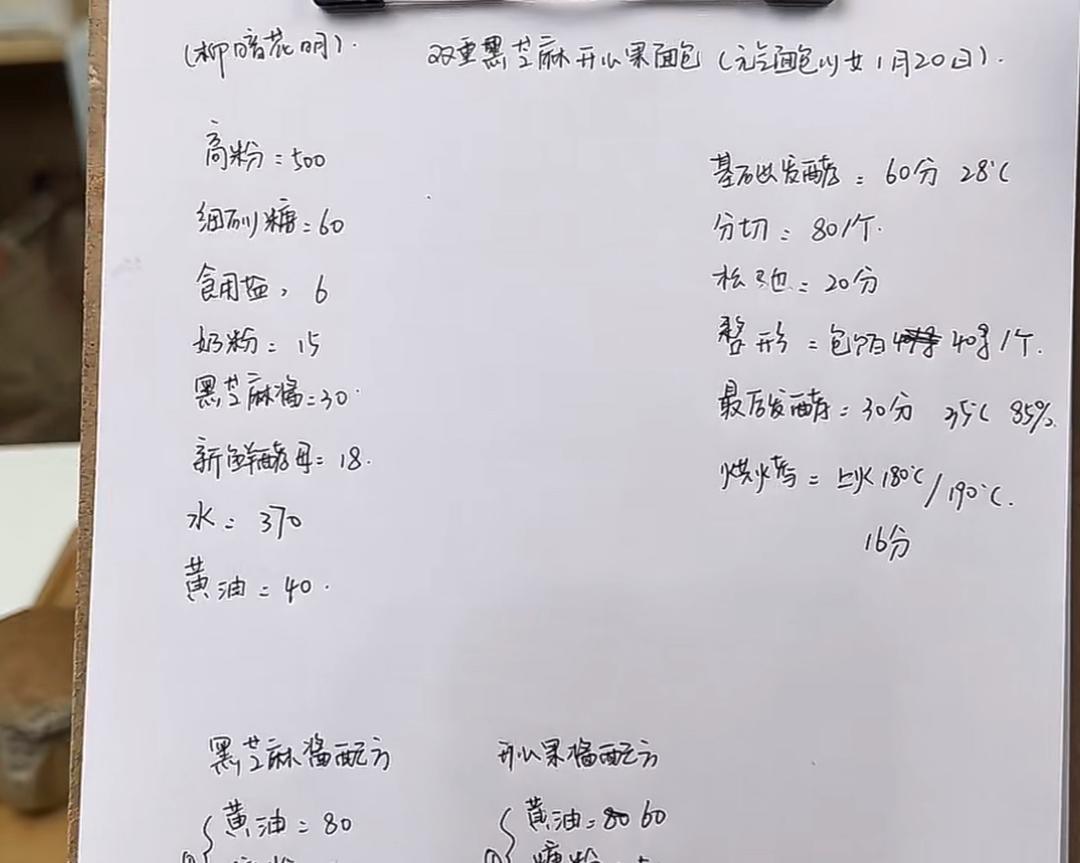 (柳暗花明). 双重黑芝麻开心果面包 (元气面包少女1月20日).
高粉=500
细砂糖=60
食用盐, 6
奶粉=15
黑芝麻酱=30
新鲜酵母=18.
水=370
黄油=40.
基础发酵=60分 28℃
分切=80/个.
松弛=20分
整形=包馅 40g/个.
最后发酵=30分 35℃ 85%.
烘烤=上火180℃/190℃.
16分
黑芝麻酱配方
黄油=80
开心果酱配方
黄油=60
糖粉